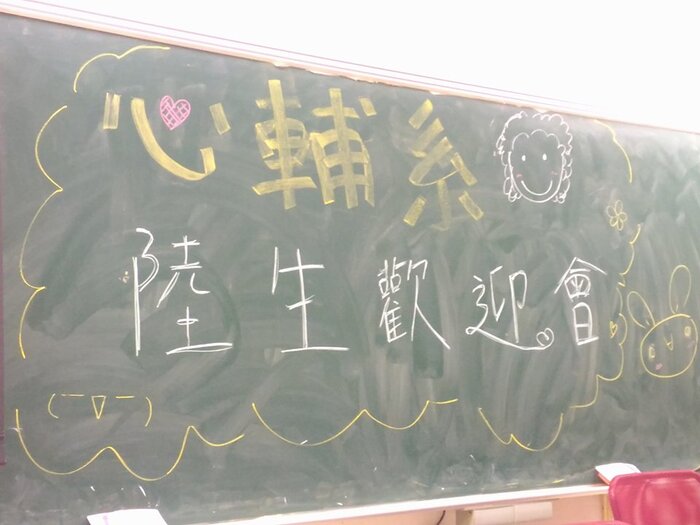 心輔系
陸生歡迎會